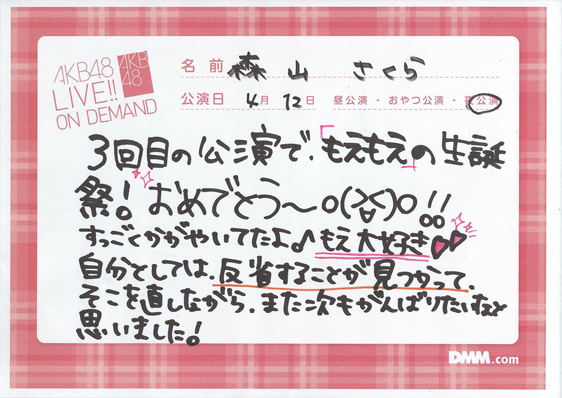 AKB48
LIVE!!
ON DEMAND
AKB
48
名前 森山 さくら
公演日 4月 12日 昼公演・おやつ公演・夜公演
3回目の公演で、「もえもえ」の生誕
祭！おめでとう〜o(^▽^)o!!
すっごくかがやいてたよ♪もえ大好き
自分としては、反省することが見つかって、
そこを直しながら、また次もがんばりたいなと
思いました！
DMM.com